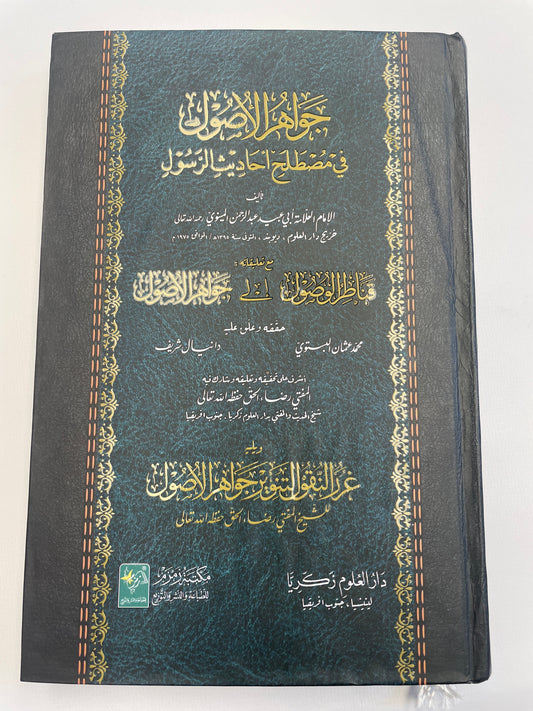 جواهر الأصول
في مصطلح أحاديث الرسول
تأليف
الإمام العلامة أبي عبيد عبد الرحمن المينوي رحمه الله تعالى
خريج دار العلوم ، ديوبند ، المتوفى سنة ١٣٩٥هـ/الموافق ١٩٧٥م
مع تعليقاته:
قناطر الوصول إلى جواهر الأصول
حققه وعلق عليه
محمد عثمان البستوي دانيال شريف
أشرف على تحقيقه وتعليقه وشارك فيه
المفتي رضاء الحق حفظه الله تعالى
شيخ الحديث والمفتي بدار العلوم زكريا، جنوب أفريقيا
ويليه
غرر النقول لتنوير جواهر الأصول
للشيخ المفتي رضاء الحق حفظه الله تعالى
دار العلوم زكريا
لينيشيا، جنوب أفريقيا
مكتبة زمزم
للطباعة والنشر والتوزيع